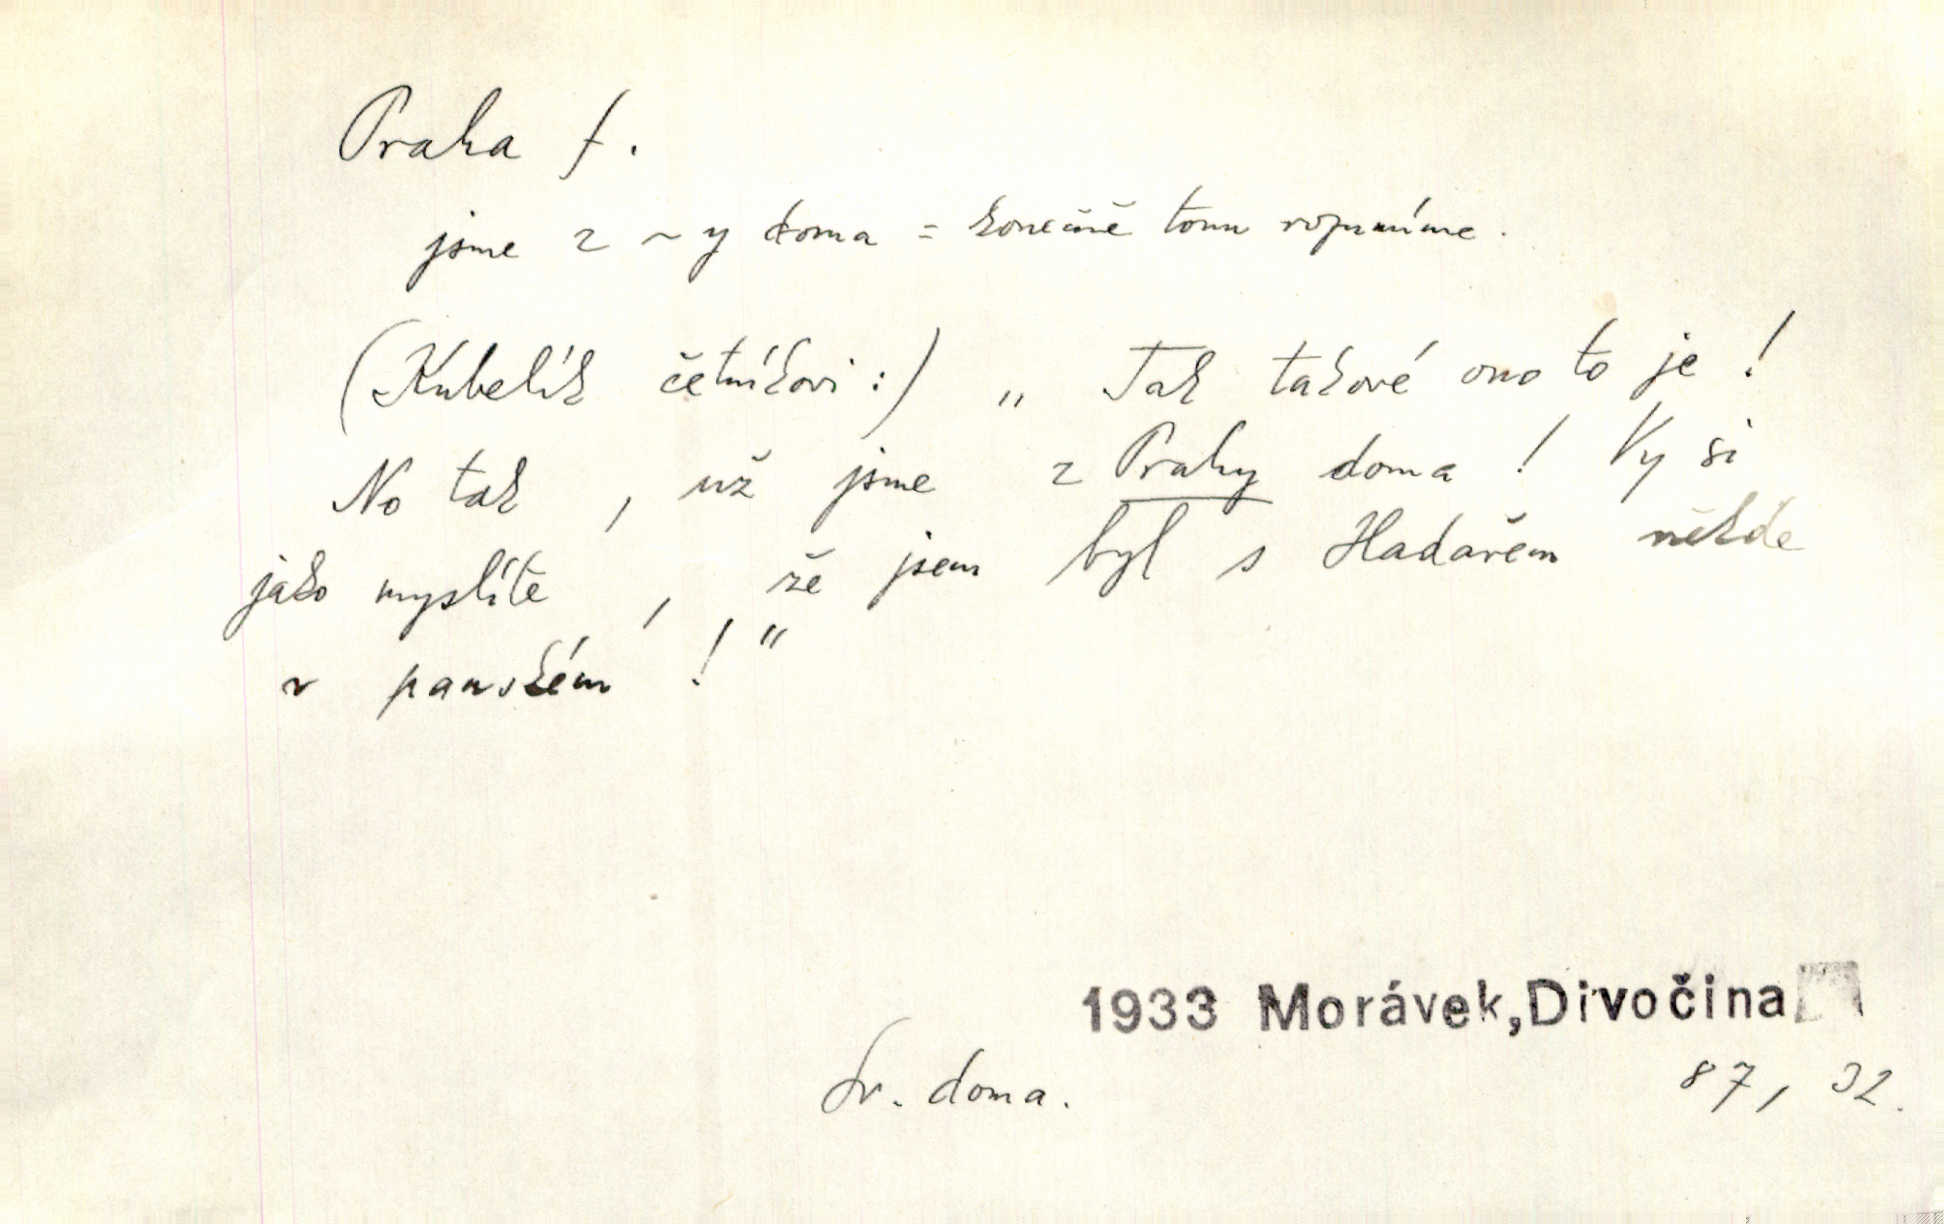 Praha f.
jsme z ~y doma = konečně tomu rozumíme.
(Kubelík četníkovi:) „Tak takové ono to je!
No tak, už jsme z Prahy doma! Vy si
jako myslíte, že jsem byl s Hadařem někde
v panském!"
1933 Morávek, Divočina
Sr. doma.
87, 32.